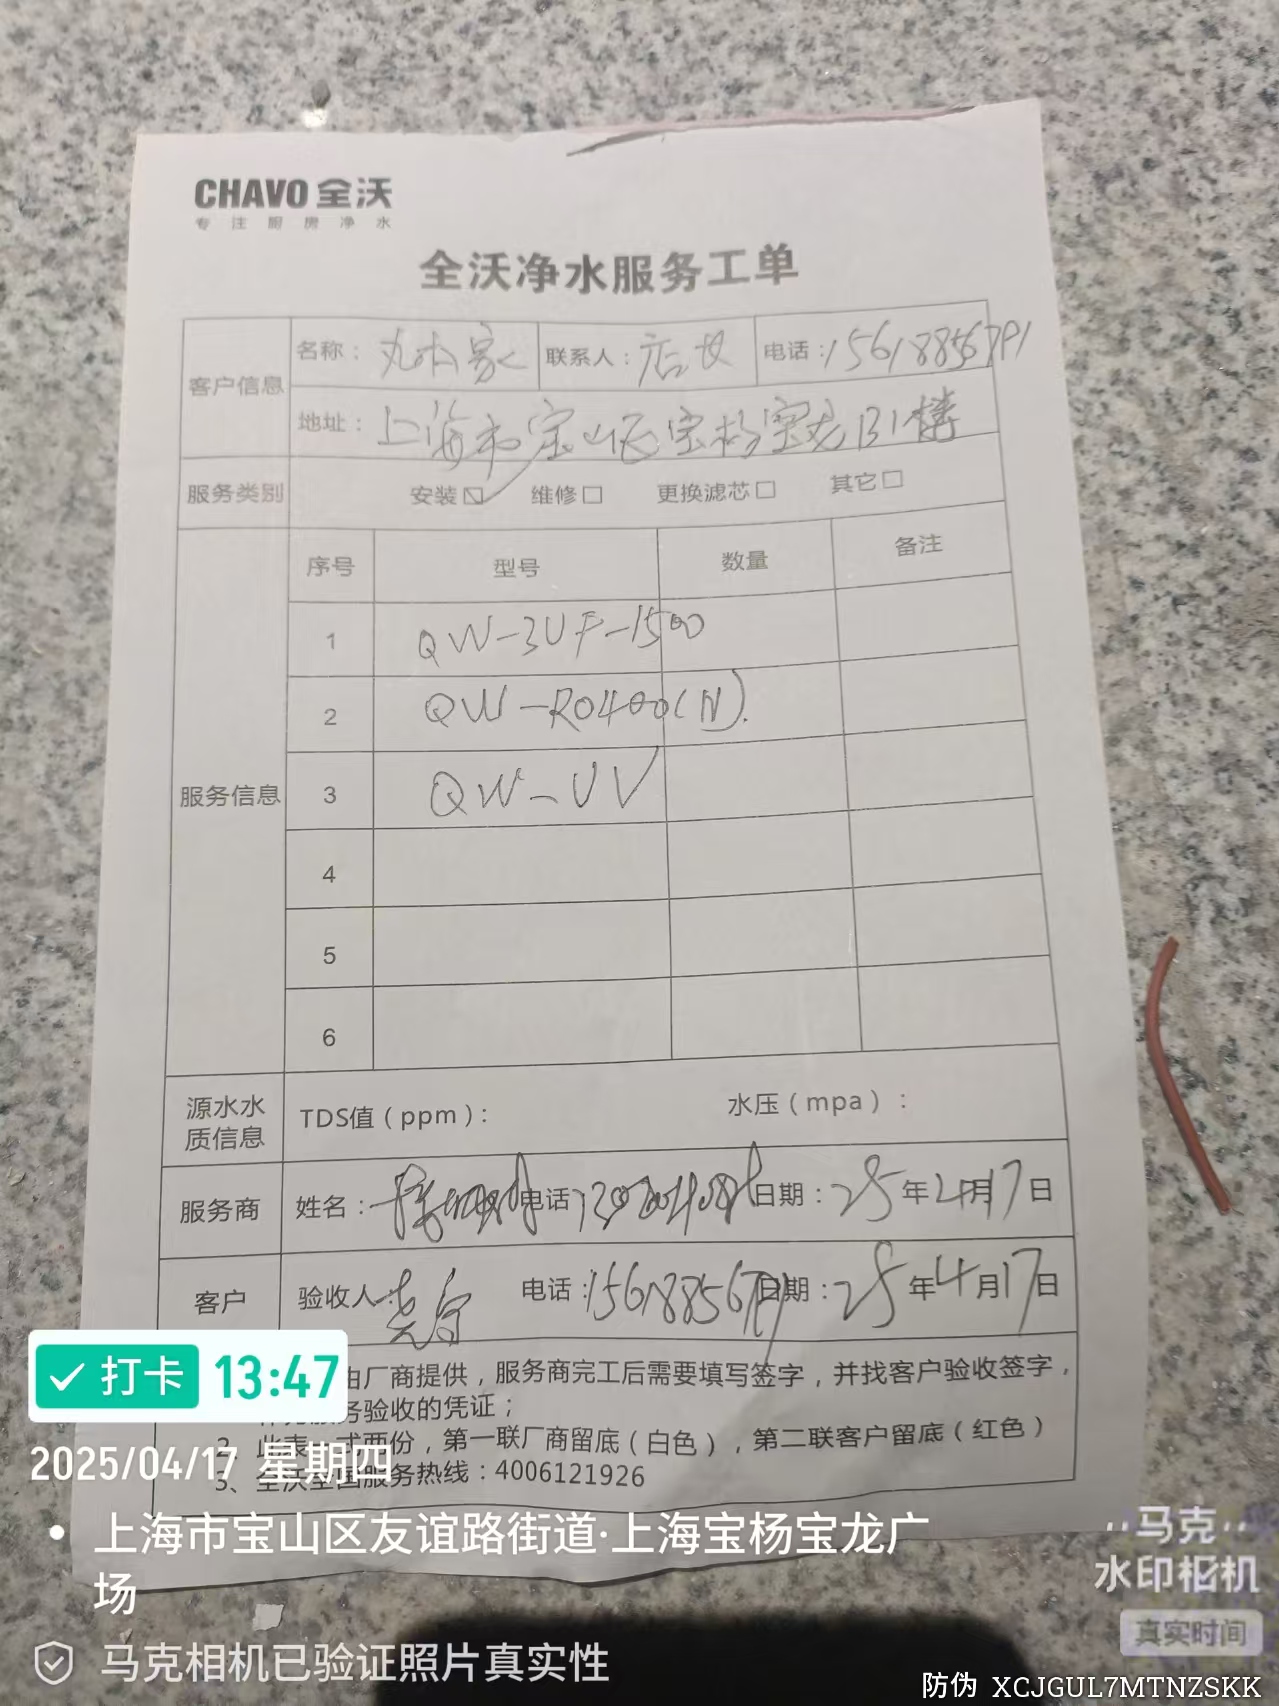 CHAVO 全沃
专注厨房净水
全沃净水服务工单
客户信息 名称： 丸本家 联系人： 店长 电话：
地址： 上海市宝山区宝杨宝龙B1楼
服务类别 安装☑ 维修□ 更换滤芯□ 其它□
服务信息 序号 型号 数量 备注
1 QW-3UF-1500
2 QW-RO400(N).
3 QW-UV
4
5
6
源水水质信息 TDS值（ppm）： 水压（mpa）：
服务商 姓名： 电话 日期：25年4月17日
客户 验收人 电话：日期：25年4月17日
由厂商提供，服务商完工后需要填写签字，并找客户验收签字，
务验收的凭证；
2、此表一式两份，第一联厂商留底（白色），第二联客户留底（红色）
3、全沃全国服务热线：4006121926
打卡 13:47
2025/04/17 星期四
上海市宝山区友谊路街道·上海宝杨宝龙广
场
马克相机已验证照片真实性
马克
水印相机
真实时间
防伪 XCJGUL7MTNZSKK